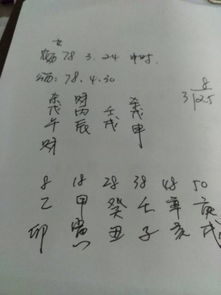 女
农历 78 3.24 申时
公历: 78.4.30
8
3 125
杀 财 杀
戊 丙 壬 戊
午 辰 戌 申
财
8 18 28 38 48 50
乙 甲 癸 壬 辛 庚
卯 寅 丑 子 亥 戌